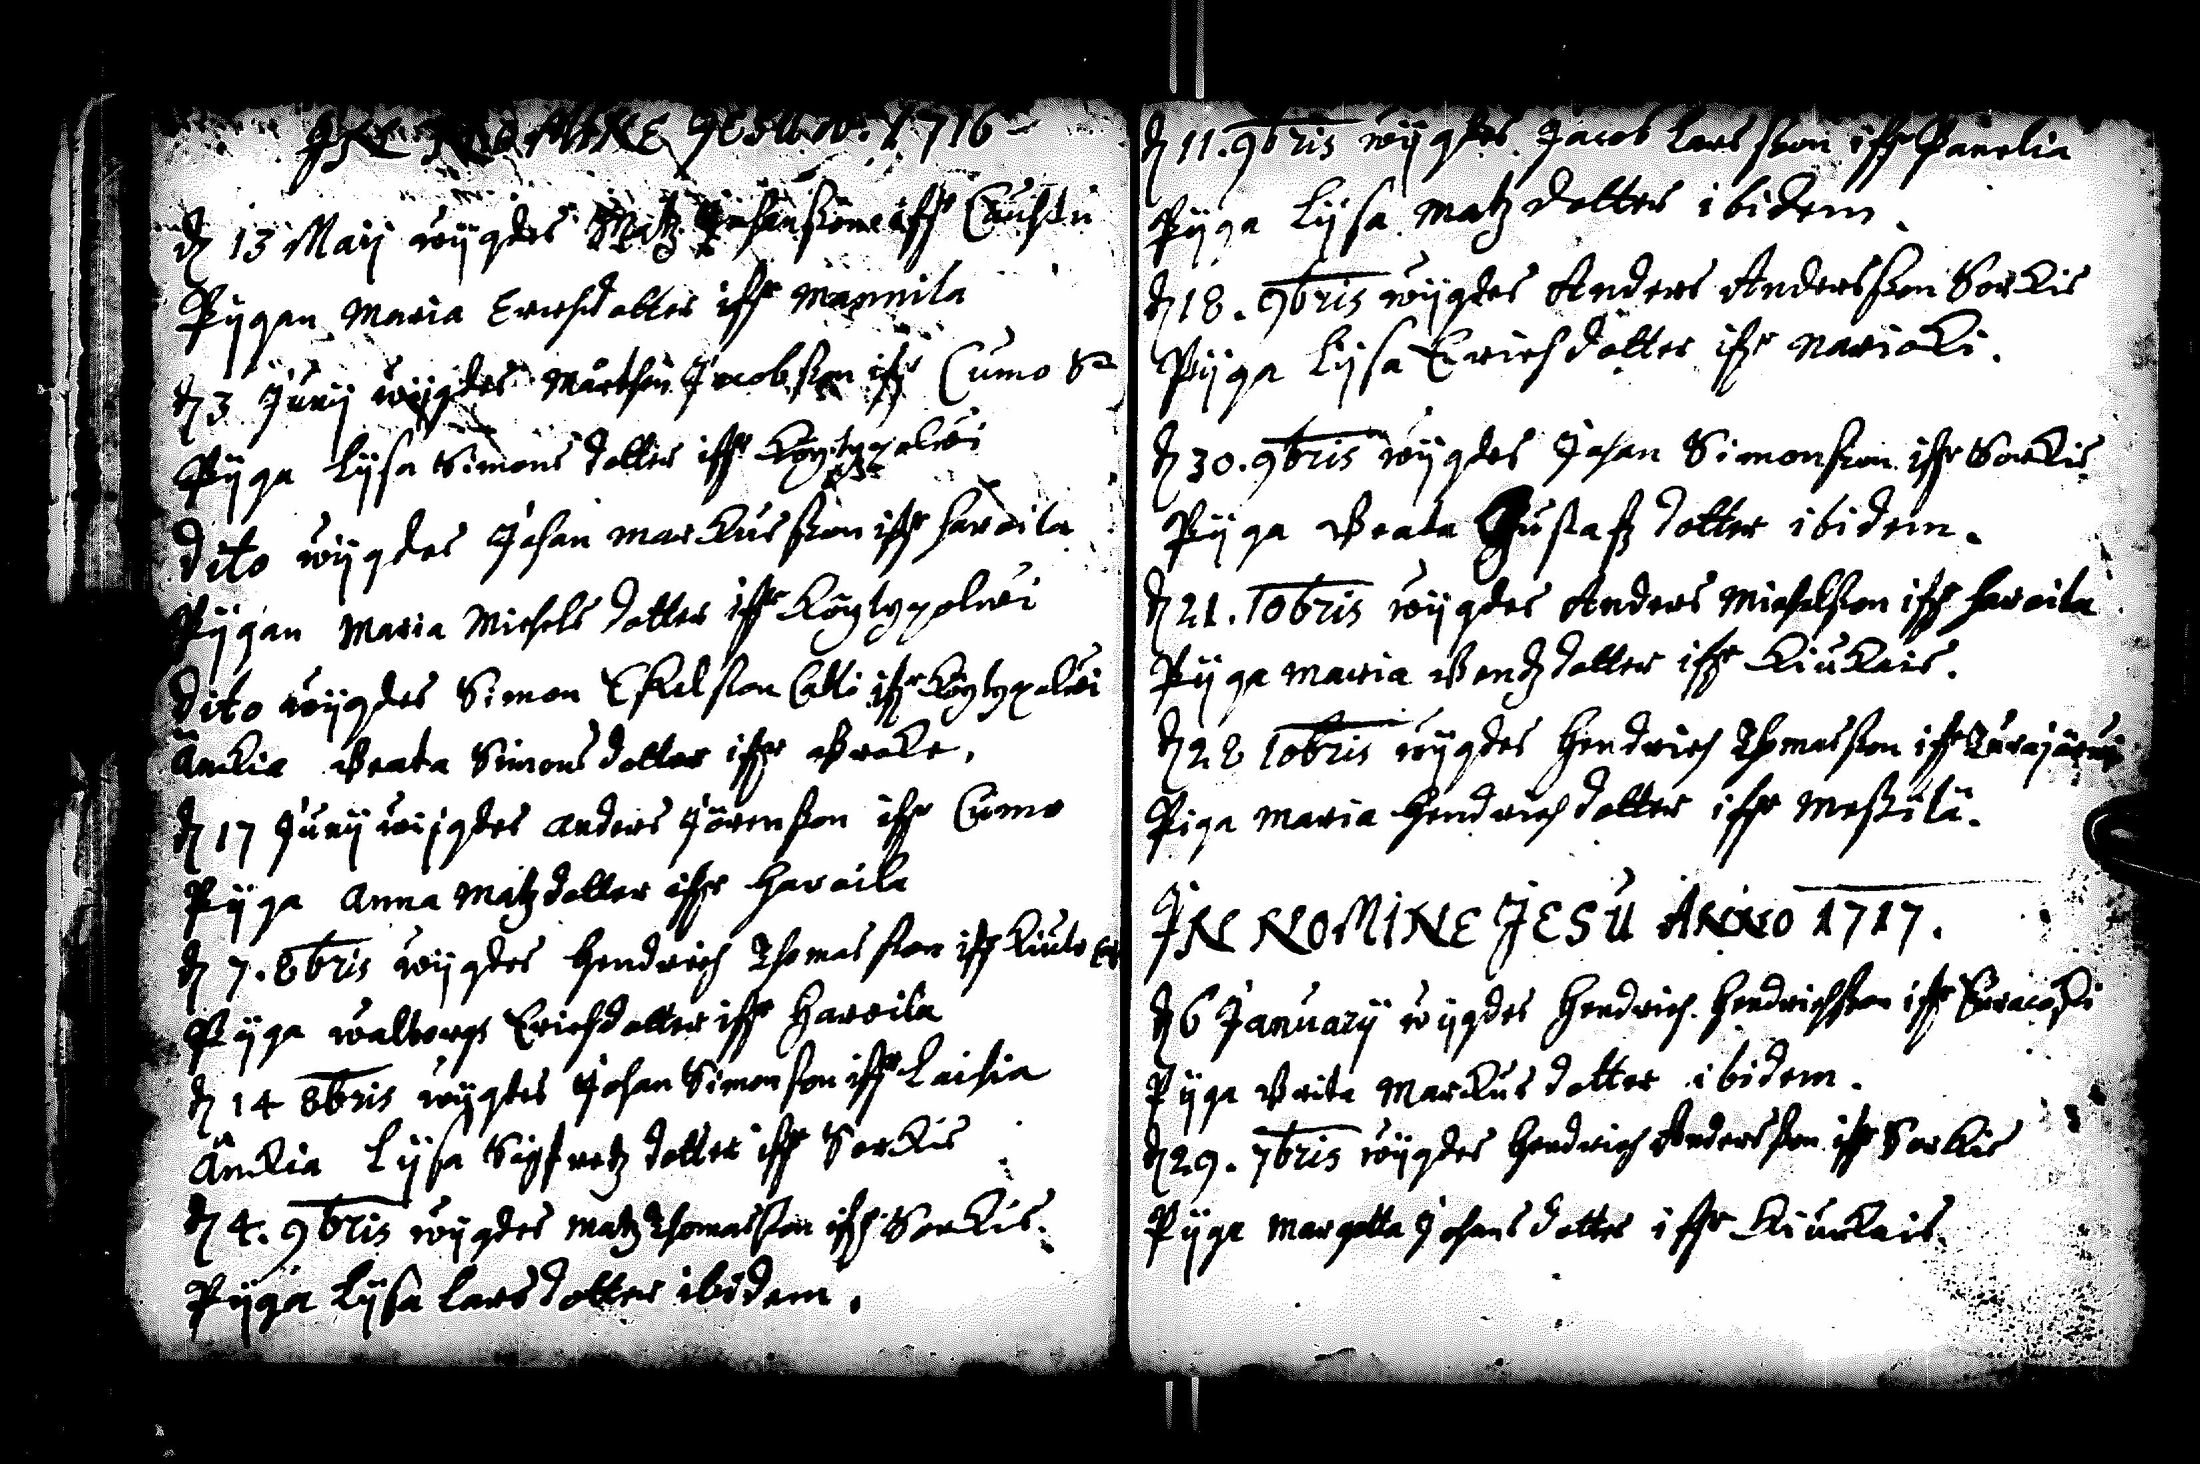 IN NOMINE JESU A. 1716
d 13 Maij wijgdes Matz Johansson ifr
Pijgan Maria Erichsdotter ifr Mannila
d 3 Junij wijgdes Mårthen Jacobsson ifr Cumo S
Pijga Lijsa Simons dotter ifr Köylypolwi
Dito wijgdes Johan Markusson ifr Haroila
Pijgan Maria Michels dotter ifr Köylypolwi
Dito wijgdes Simon Eskelsson Catti ifr Köylypolwi
Änkia Beata Simons dotter ifr
d 17 Junij wijgdes Anders Jörensson ifr Cumo
Pijga Anna Matzdotter ifr Haroila
d 7. 8bris wijgdes Hendrich Thomasson ifr
Pijga Walborgs Erichsdotter ifr Haroila
d 14 8bris wijgdes Johan Simonsson ifr
Änkia Lijsa Sigfredz dotter ifr Sorkis
d 4. 9bris wijgdes Matz Thomasson ifr Sorkis.
Pijga Lijsa Larsdotter ibidem.
d 11. 9bris wijgdes Jacob Larsson ifr Panelia
Pijga Lijsa Matz dotter ibidem.
d 18. 9bris wijgdes Anders Andersson Sorkis
Pijga Lijsa Erichsdotter ifr Narioki.
d 30. 9bris wijgdes Johan Simonsson ifr Sorkis
Pijga Beata Gustafz dotter ibidem.
d 21. 10bris wijgdes Anders Michelsson ifr Haroila
Pijga Maria Bendz dotter ifr Kiukais.
d 28 10bris wijgdes Hendrich Thomasson ifr Turajärwi
Piga Maria Hendrichsdotter ifr Mestilä.
IN NOMINE JESU ANNO 1717.
d 6 Januarij wijgdes Hendrich Hendrichsson ifr Euracoski
Pijga Brita Markusdotter ibidem.
d 29. 7bris wijgdes Hendrich Andersson ifr Sorkis
Pijga Margetta Johansdotter ifr Kiurkais.